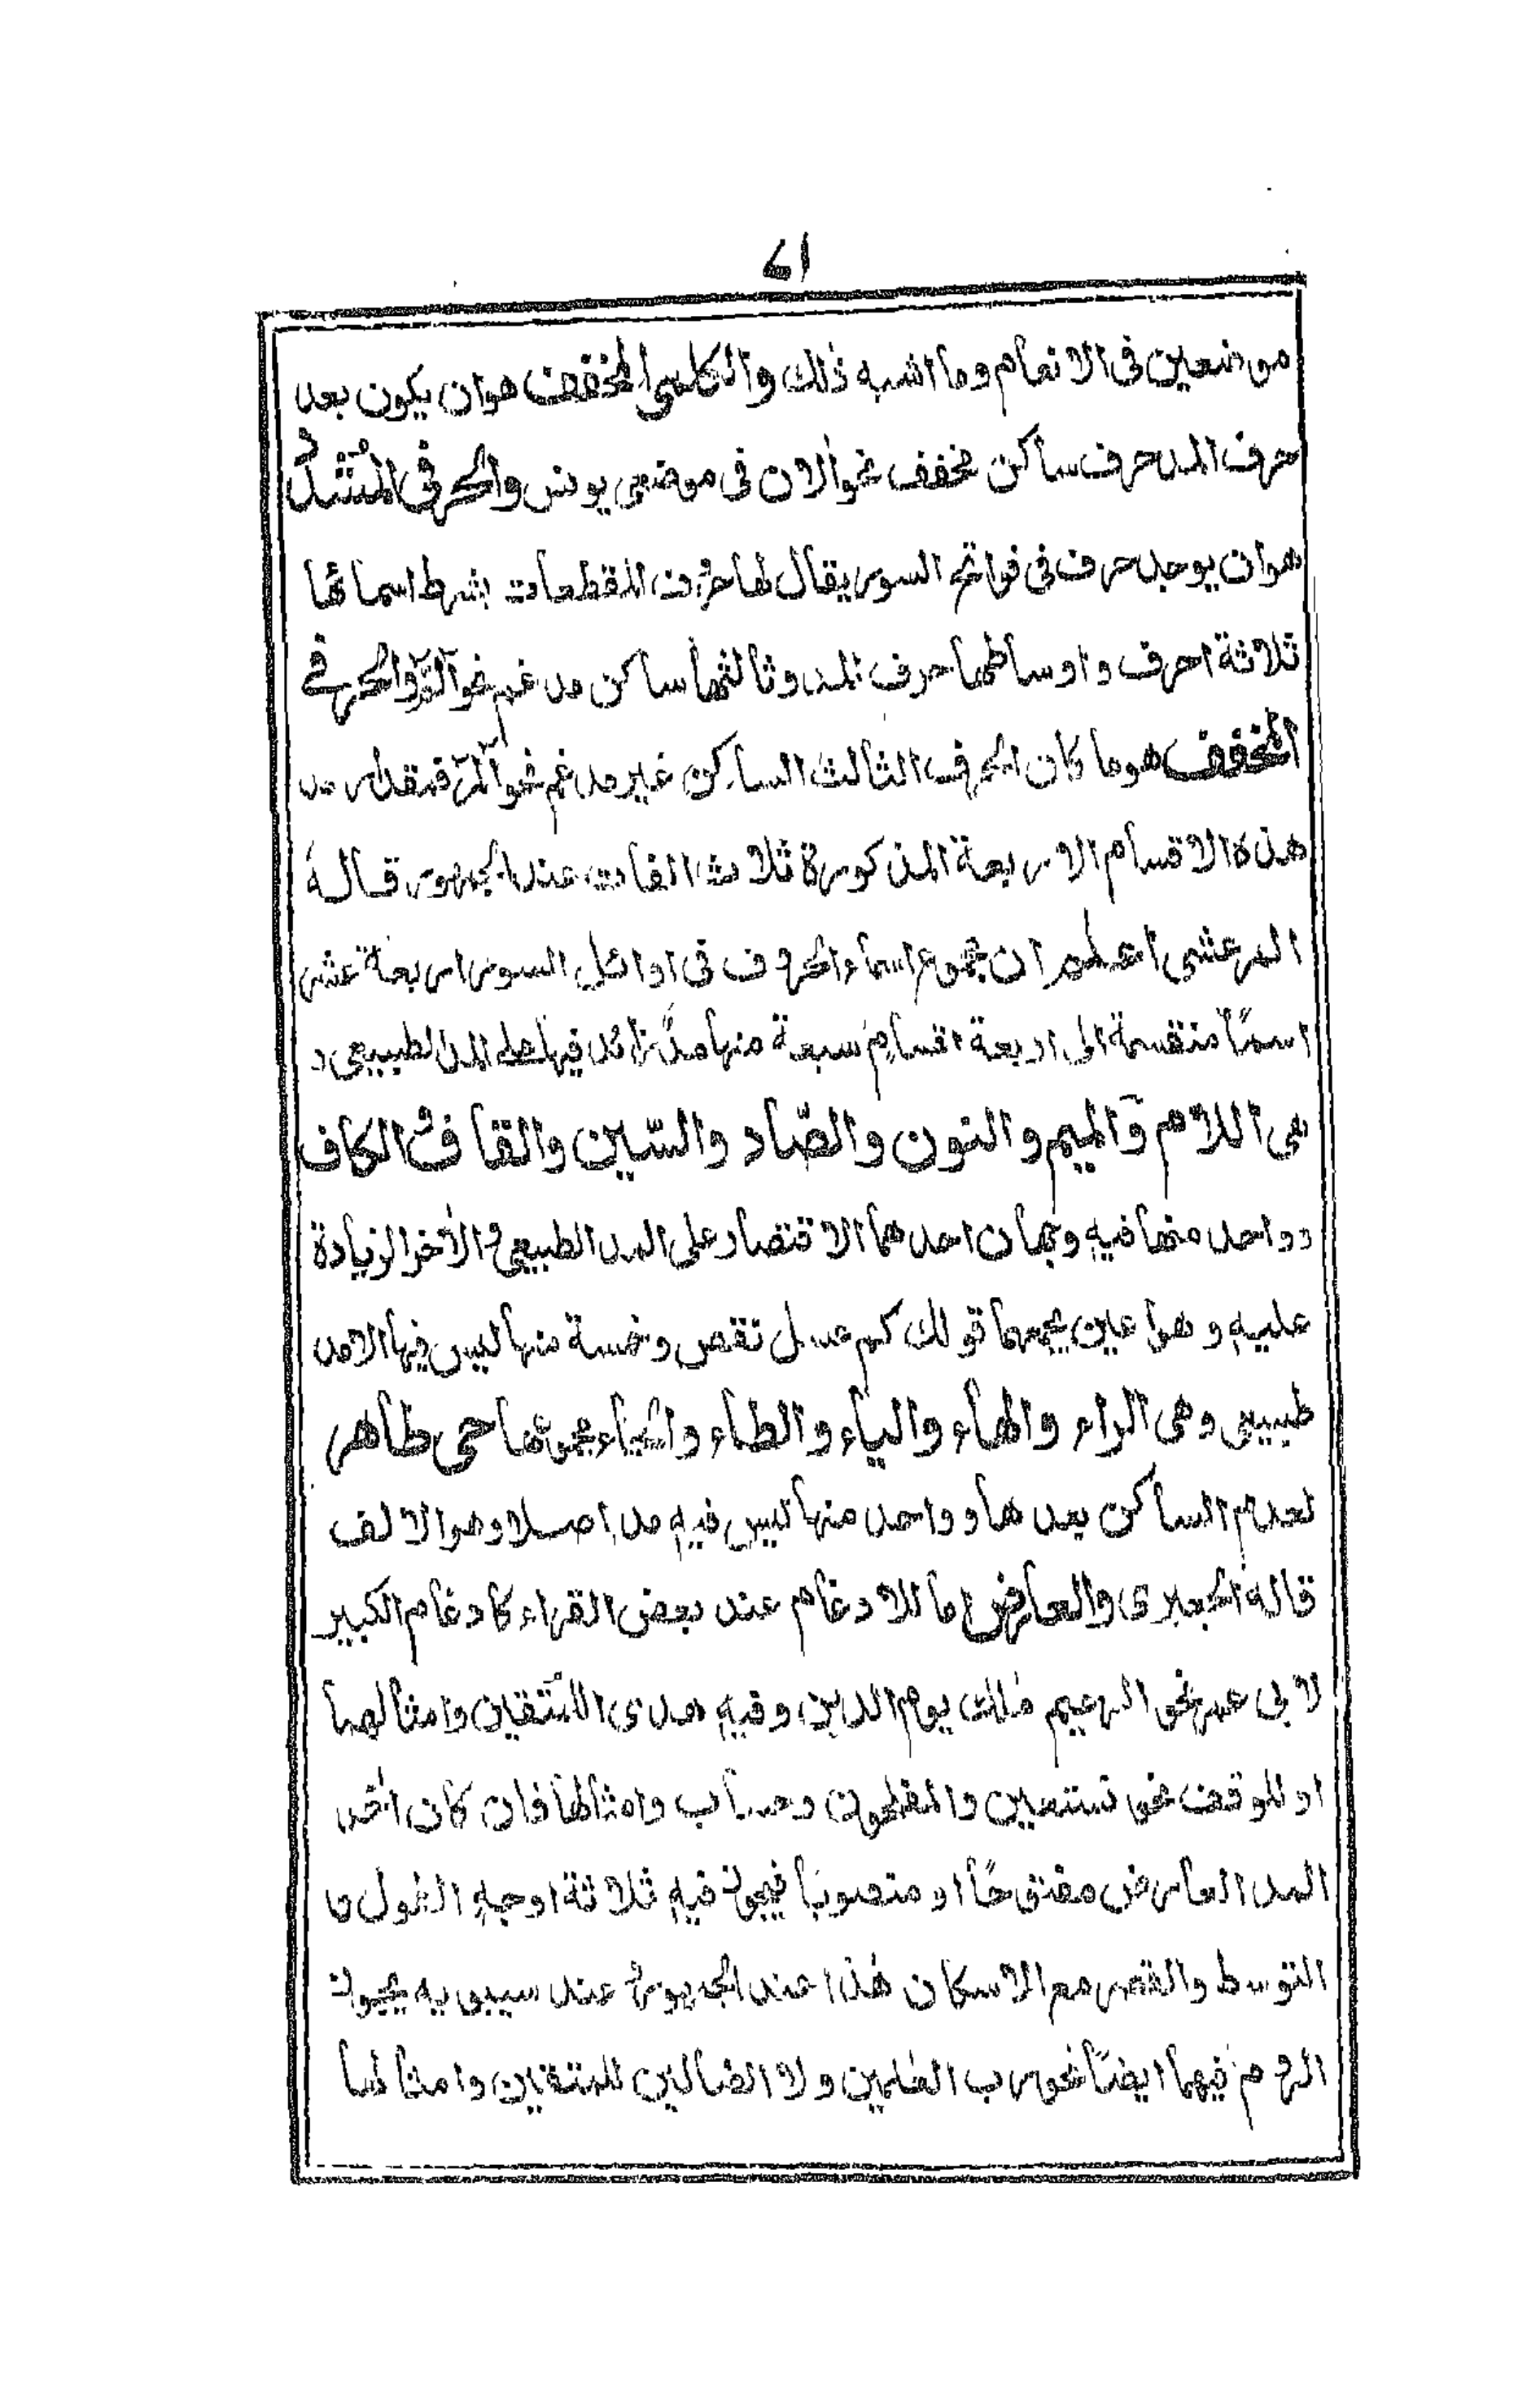 ١٧
موضعين فى الانعام وما اشبه ذٰلك والكلمى المخفف هوان يكون بعد
حرف المد حرف ساكن مخفف نحو آلان فى موضعى يونس والحرفى المُشَدَّد
هوان يوجد حرف فى فواتح السور يقال لها حروف المقطعات بشرط اسمائها
ثلاثة احرف واوساطها حرف المد وثالثها ساكن مدغم نحو الٓمّٓ والحرفى
المخفف هوما كان الحرف الثالث الساكن غير مدغم نحو الٓمّٓ فمقدار مد
هذه الاقسام الاربعة المذكورة ثلاث الفات عند الجمهور قاله
المرعشى اعلم ان مجموع اسماء الحروف فى اوائل السور اربعة عشر
اسمًا منقسمة الى اربعة اقسام سبعة منها مدٌّ زائد فيها على المد الطبيعى و
هى اللام والميم والنون والصّاد والسّين والقاف والكاف
وواحد منها فيه وجهان احدهما الاقتصار على المد الطبيعى والأخر الزيادة
عليه وهو عين يجمعها قولك كم عسل نقص وخمسة منها ليس فيها الامد
طبيعى وهى الراء والهاء والياء والطاء والحاء مجموعها حى طاهر
لعدم الساكن بعدها وواحد منها ليس فيه مد اصلا وهو الالف
قاله الجعبرى والعارض اما للادغام عند بعض القراء كادغام الكبير
لابى عمرو نحو الرحيم مٰلك يوم الدين وفيه هدى للمتقين وامثالهما
او للوقف نحو نستعين والمفلحون وحساب وامثالها فان كان اٰخر
المد العارض مفتوحًا او منصوبا فيجوز فيه ثلاثة اوجه الطول و
التوسط والقصر مع الاسكان هٰذا عند الجمهور وعند سيبويه يجوز
الروم فيهما ايضًا نحو رب العٰلمين ولا الضالين للمتقين وامثالها